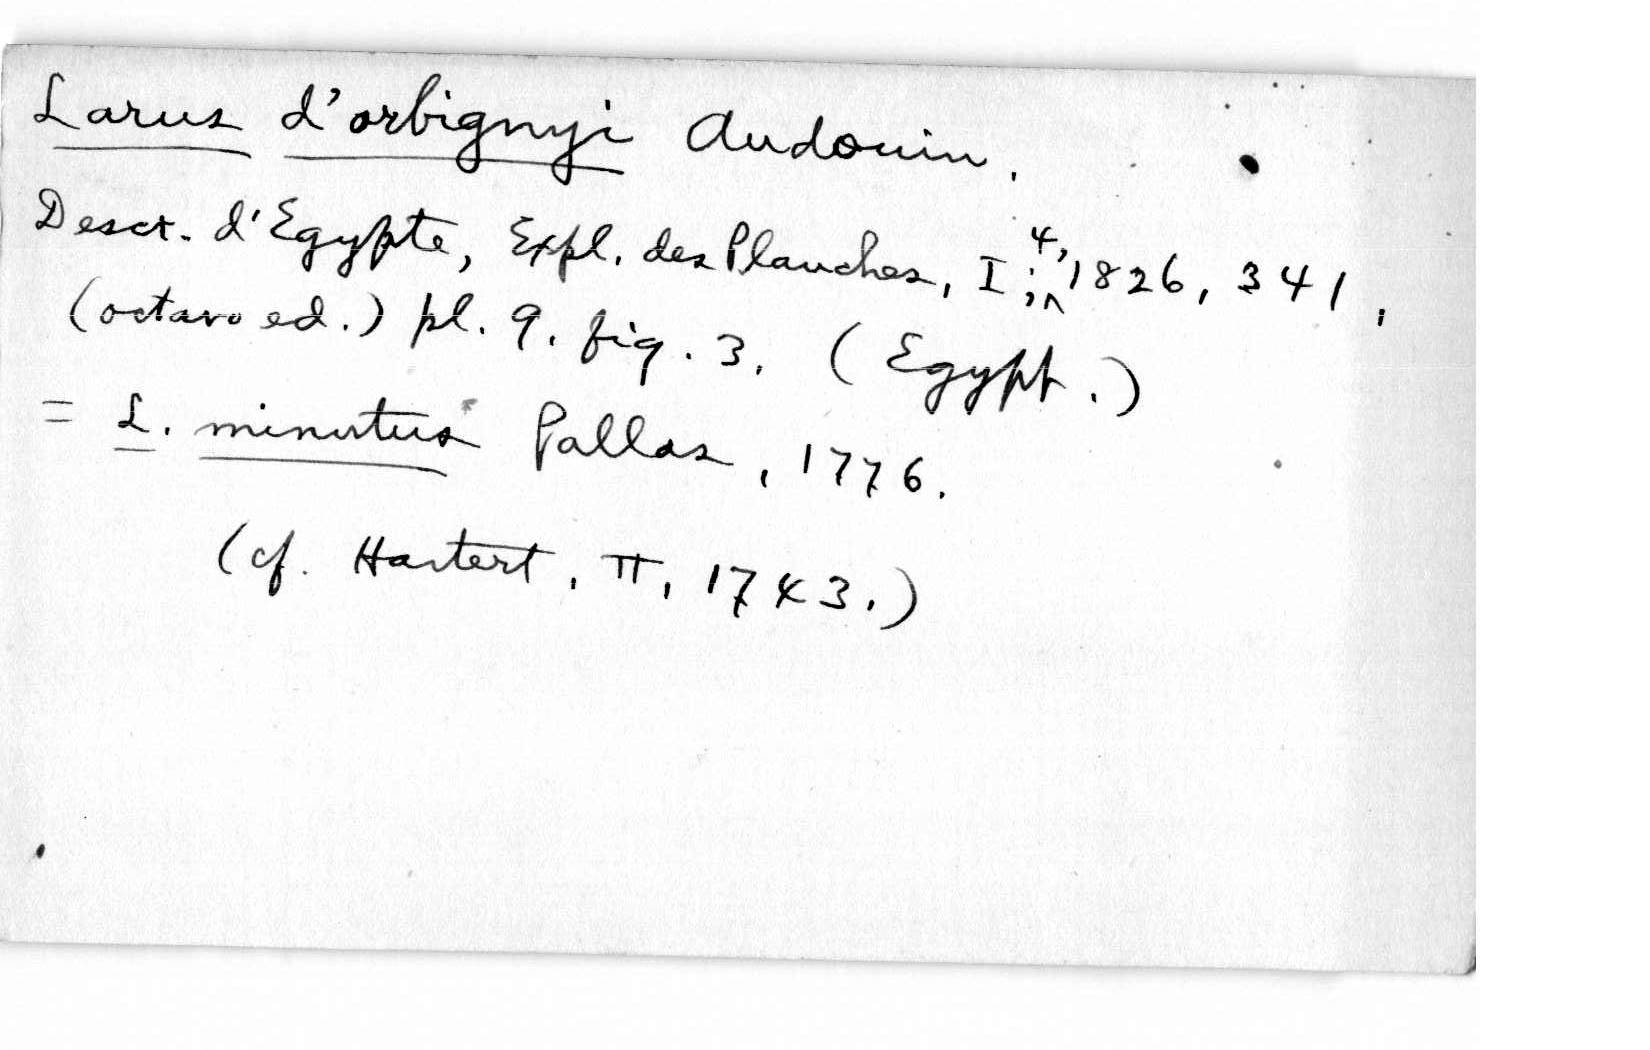 Larus d'orbignyi Audouin.
Descr. d'Egypte, Expl. des Planches, I; 4, 1826, 341,
(octavo ed.) pl. 9. fig. 3. (Egypt.)
= L. minutus Pallas, 1776.
(cf. Hartert, II, 1743.)